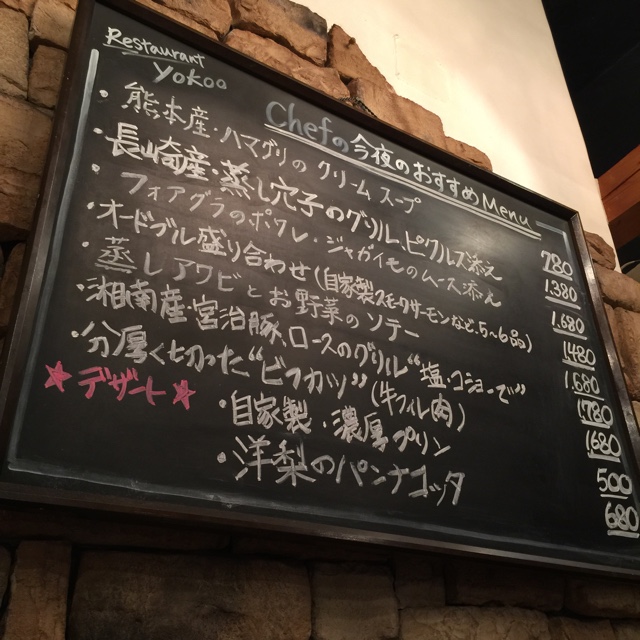 Restaurant
Yokoo
Chefの今夜のおすすめMenu
・熊本産・ハマグリのクリームスープ 780
・長崎産・蒸し穴子のグリル、ピクルス添え 1,380
・フォアグラのポワレ・ジャガイモのムース添え 1,680
・オードブル盛り合わせ(自家製スモークサーモンなど、5~6品) 1480
・蒸しアワビとお野菜のソテー 1,680
・湘南産・宮治豚、ロースのグリル“塩・コショーで” 1780
・分厚く切った“ビフカツ”(牛フィレ肉) 1680
★デザート★
・自家製・濃厚プリン 500
・洋梨のパンナコッタ 680